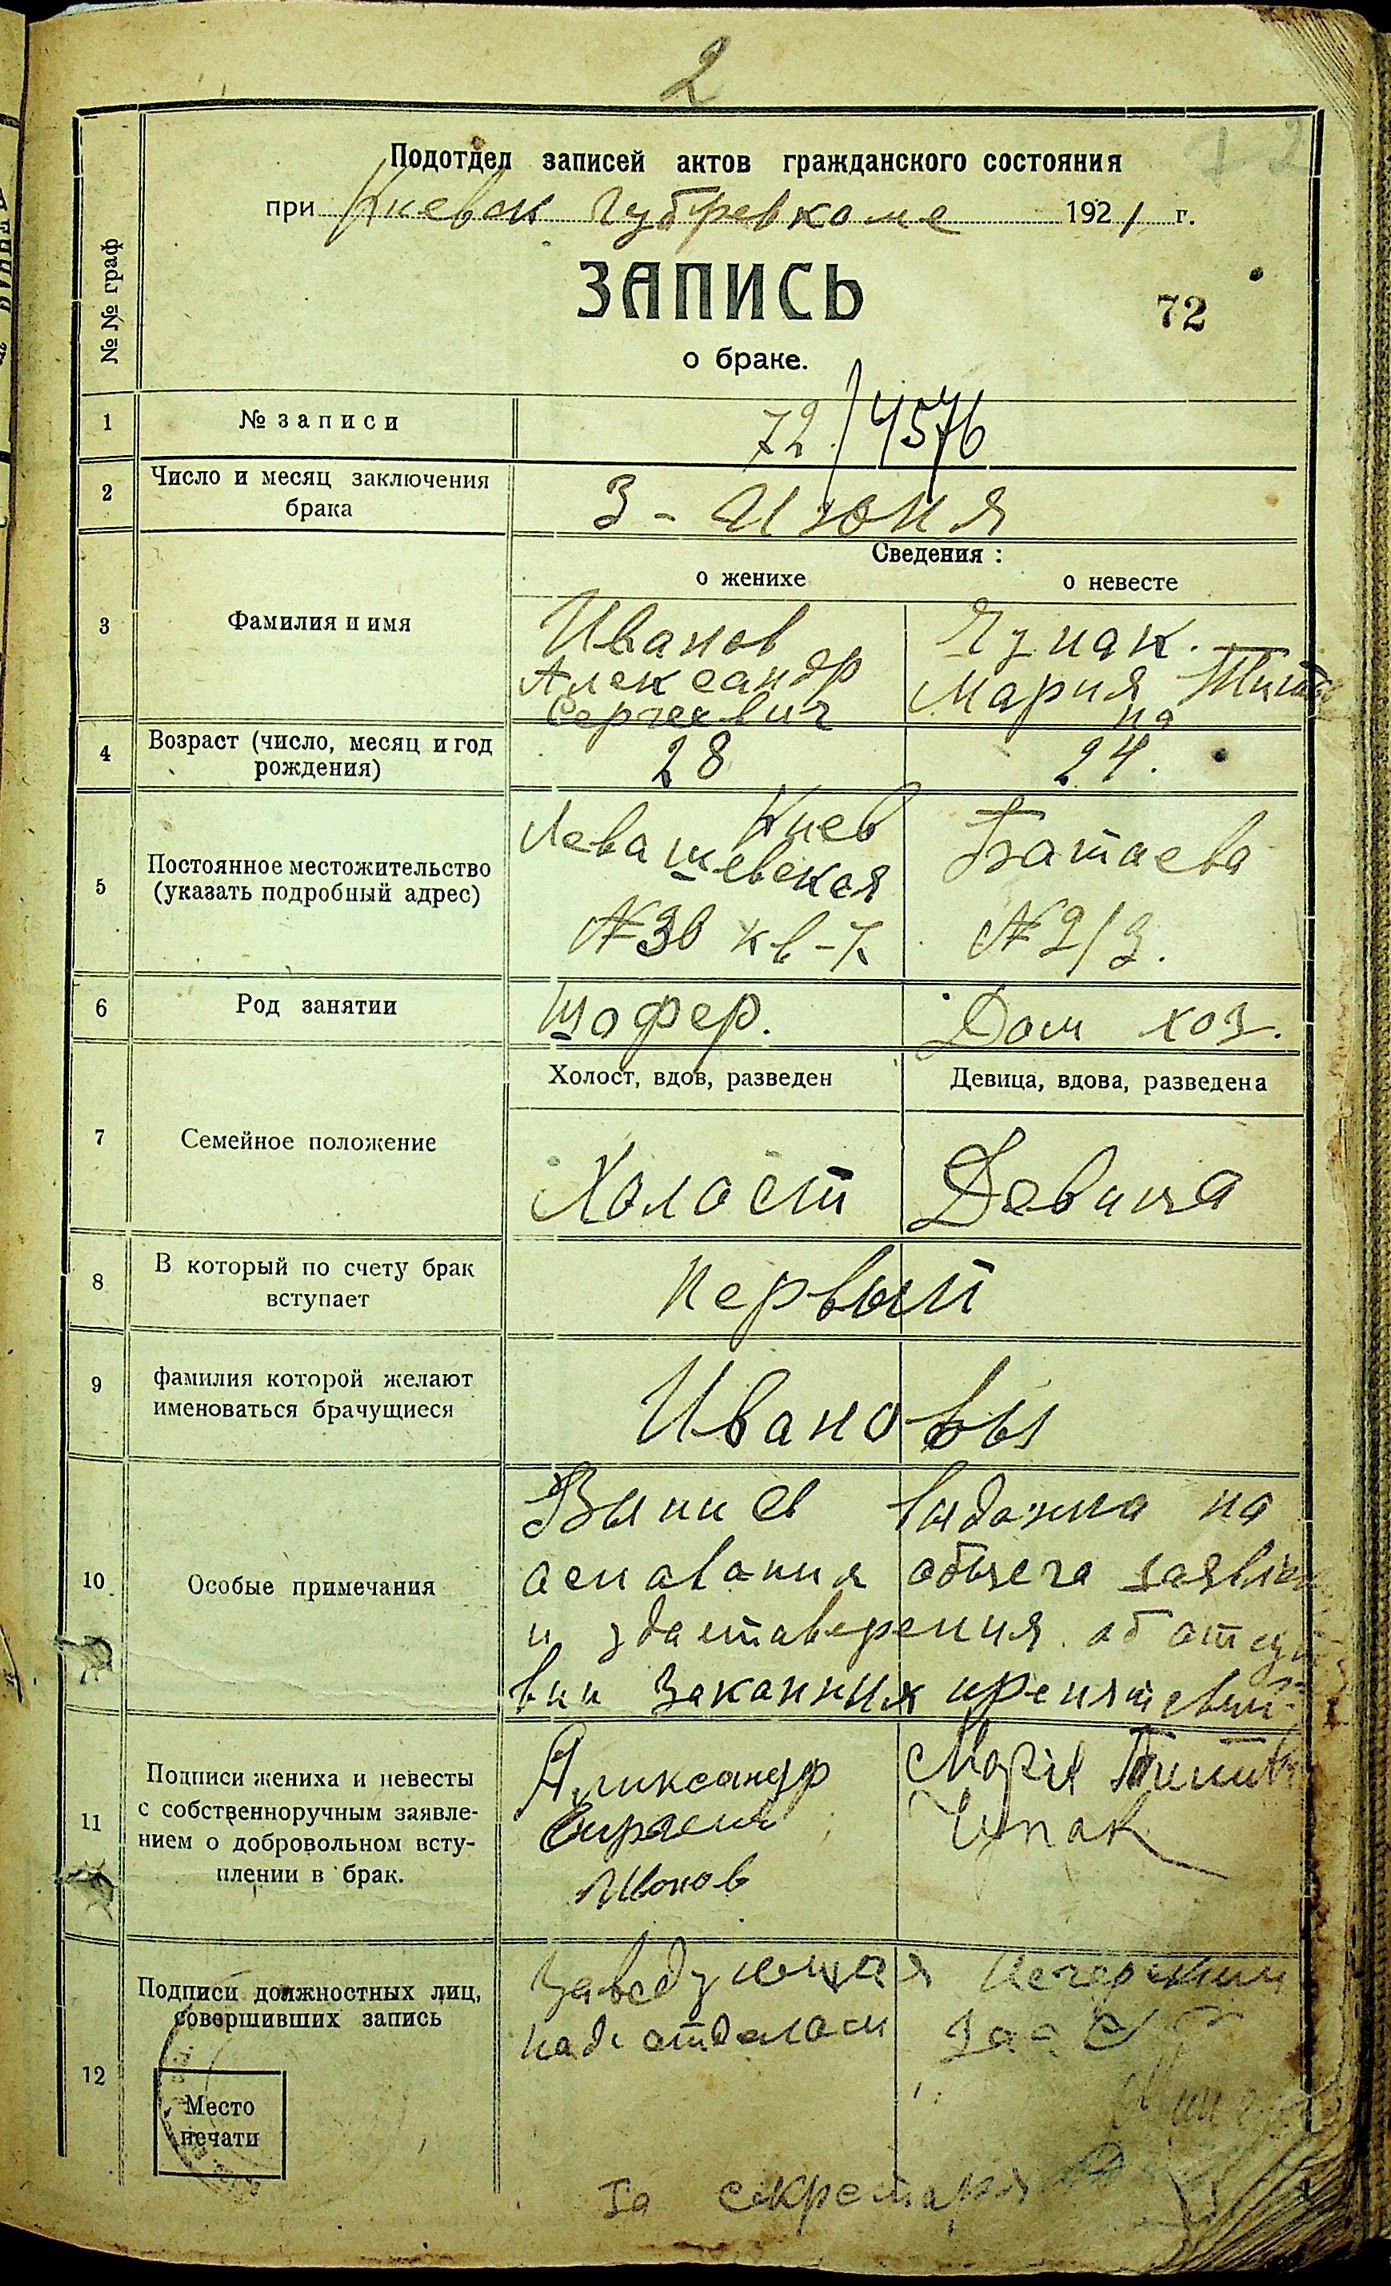 2
Подотдел записей актов гражданского состояния
при Киевск Губревкоме 1921 г.
№ № граф
ЗАПИСЬ
72
о браке.
1 № записи 72/4576
2 Число и месяц заключения брака 3 - Июня
Сведения :
о женихе о невесте
3 Фамилия и имя
Иванов
Александр
Сергеевич
Мария
4 Возраст (число, месяц и год рождения) 28 24.
5 Постоянное местожительство (указать подробный адрес)
Киев
Левашевская
№ 30 кв-7
№ 2/3.
6 Род занятии Шофер. Дом хоз.
Холост, вдов, разведен Девица, вдова, разведена
7 Семейное положение Холост Девица
8 В который по счету брак вступает Первый
9 фамилия которой желают именоваться брачущиеся Ивановы
10 Особые примечания
Выпись выдана на
основания общего
и удастоверения об отсутс
вии заканных препятствий
11 Подписи жениха и невесты
с собственноручным заявле-
нием о добровольном всту-
плении в брак.
Иванов
Чупак
12 Подписи должностных лиц,
совершивших запись
Заведующая
подотделом
Место
печати
За секретаря